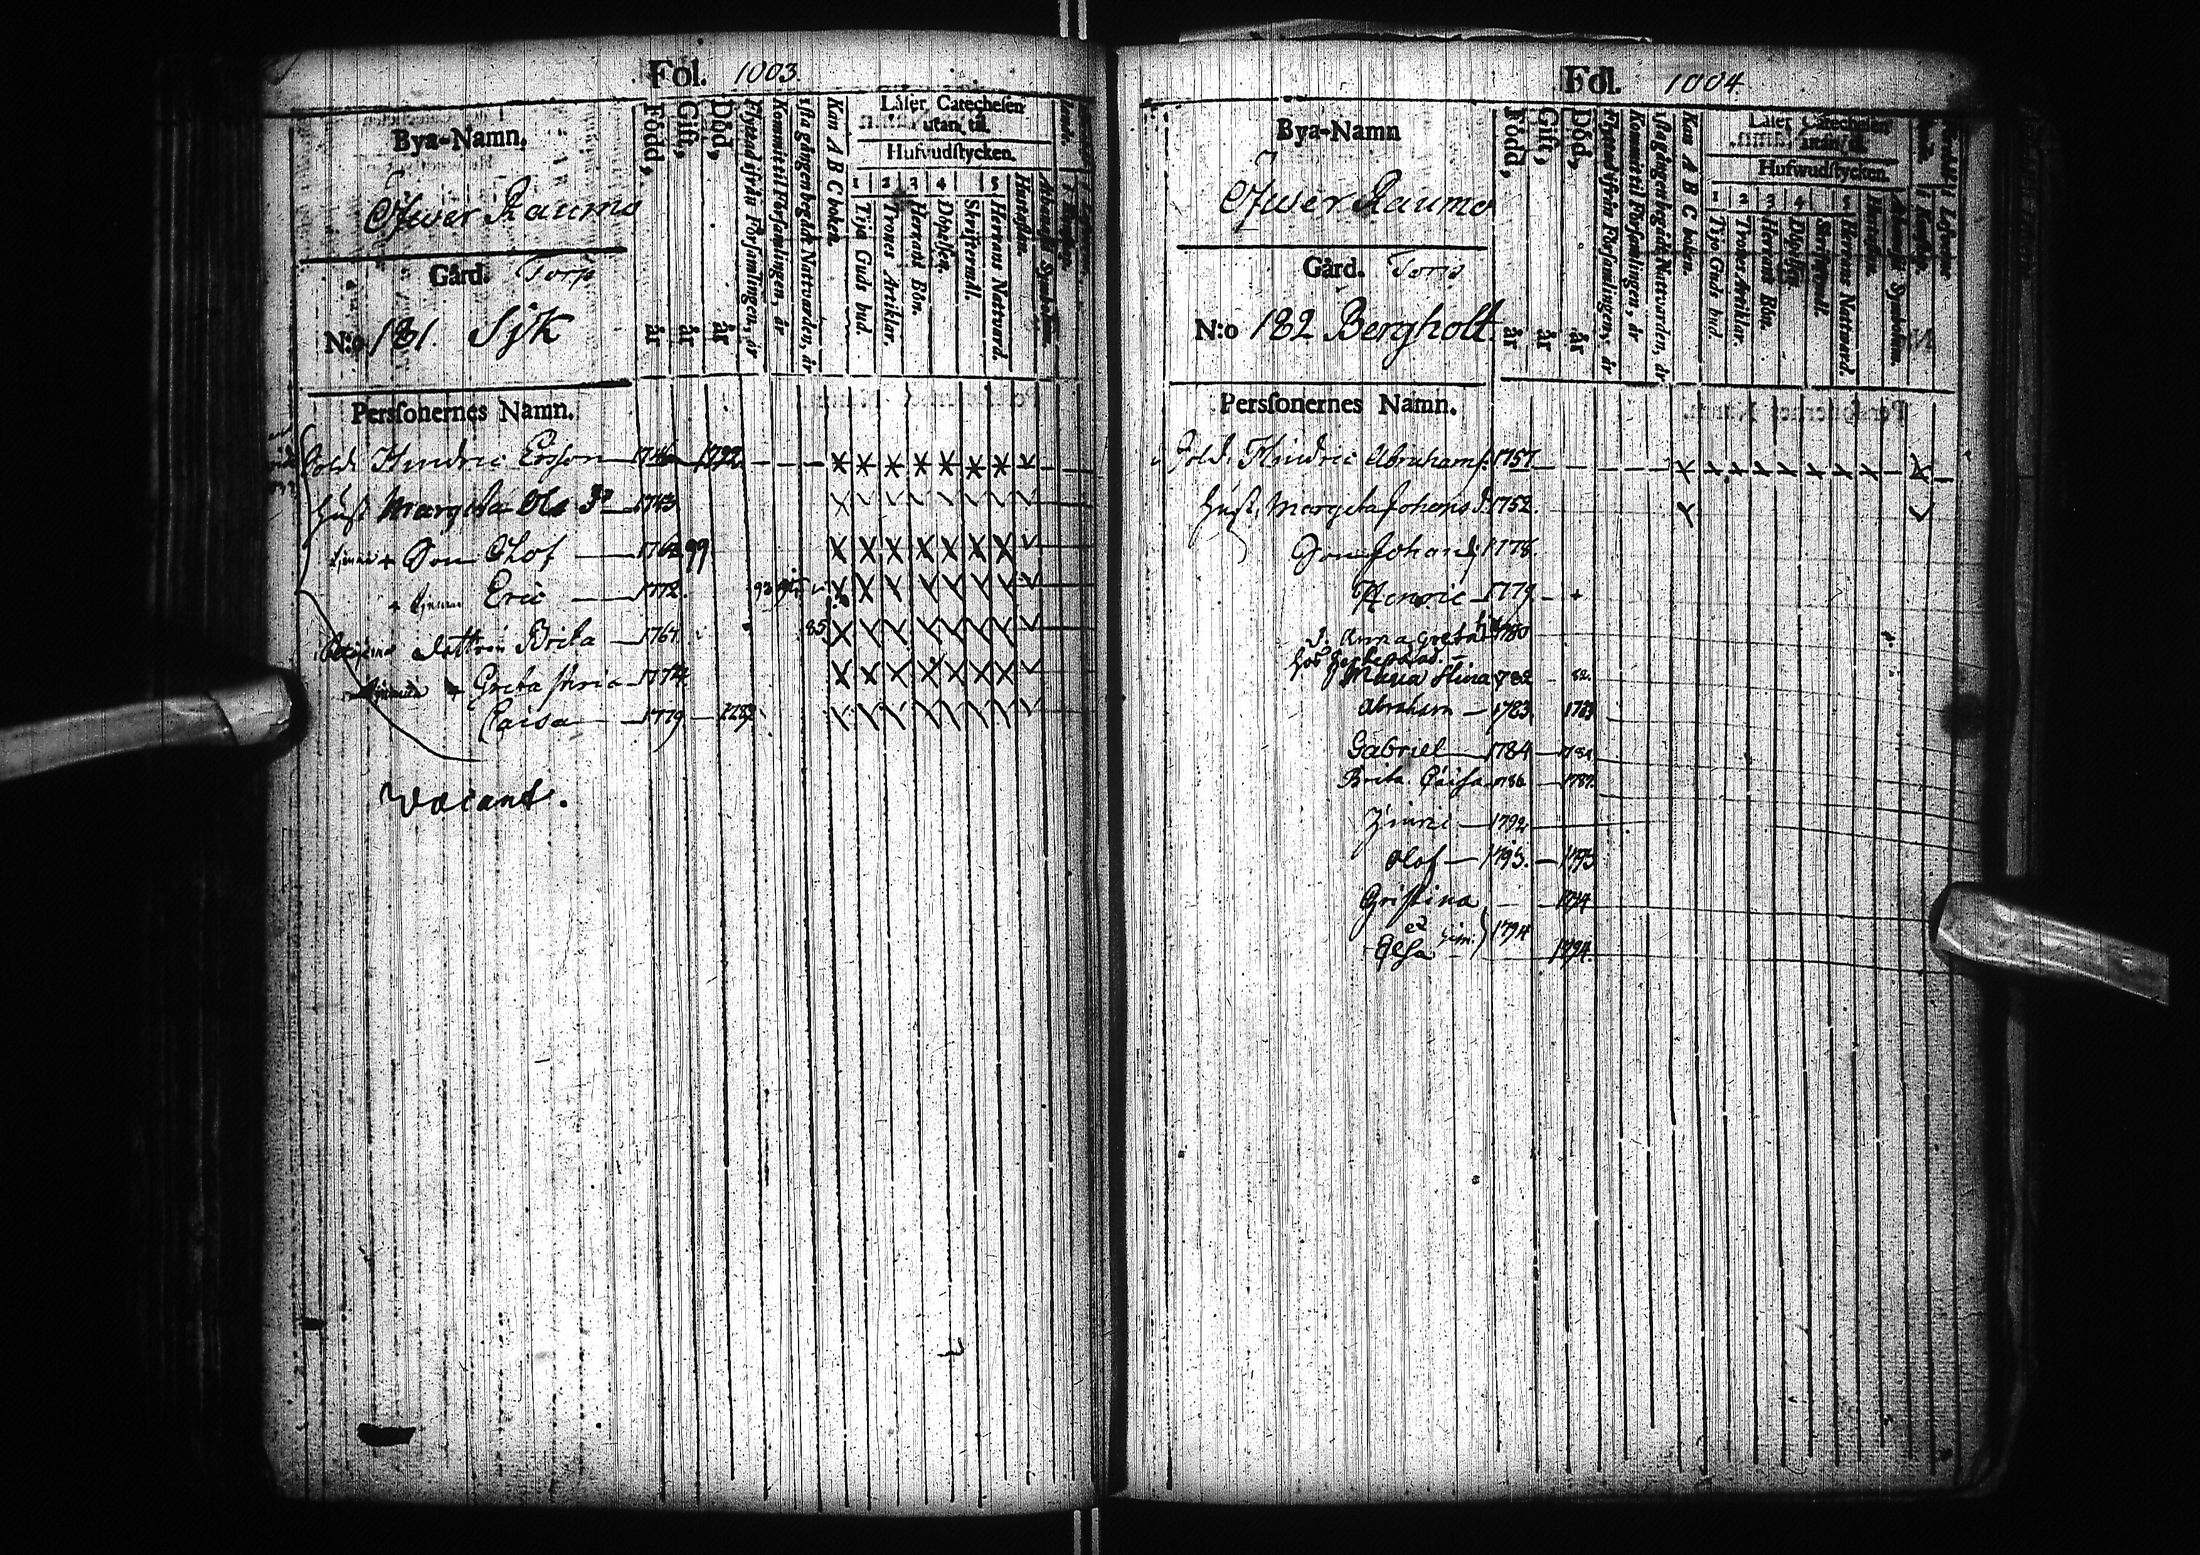 Fol. 1003.
Bya-Namn.
Öfwer Raumo
Gård. Torp
N:o 181. Sjk
Född, år
Gift, år
Död, år
Flyttad ifrån Församlingen, år
Kommit til Församlingen, år
Kan A B C boken.
Läser Catechesen
utan til.
Hufvudstycken.
1 2 3 4 5
Tijo Guds bud.
Trones Artiklar.
Herrans Bön.
Döpelsen.
Skriftermål.
Herrans Nattvard.
Hustaflan.
Athanasii Symbolum.
Perssonernes Namn.
Sold. Hindric Ersson 1746 1792
Hust. Margeta Ols Dr 1743
Son Olof 1762 99
Eric 1772. 93 95
dottren Brita 1767. 85
Greta Stina 1774
Caisa 1779 1789
Vacant.
Fol. 1004.
Bya-Namn
Öfwer Raumo
Gård. Torp
N:o 182 Bergholt.
Född, år
Gift, år
Död, år
Flyttad ifrån Församlingen, år
Kommit til Församlingen, år
sista gången begådt Nattvarden, år
Kan A B C boken.
Läser Catechesen
utan til.
Hufwudstycken.
1 2 3 4 5
Tijo Guds bud.
Trones Artiklar.
Herrans Bön.
Döpelsen.
Skriftermål.
Herrans Nattvard.
Hustaflan.
Athanasii Symbolum.
Perssonernes Namn.
Sold. Hindric Abrahams. 1757
Hust. Margeta Johans d. 1752.
Son Johan 1778.
Henric 1779
d. Anna Greta 1780
Maria Stina 1782 82.
Abraham 1783 1783
Gabriel 1784 1784
Brita Caisa 1786 1787.
1792
Olof 1793. 1793
Cristina 1794
et
Elsa 1794 1794